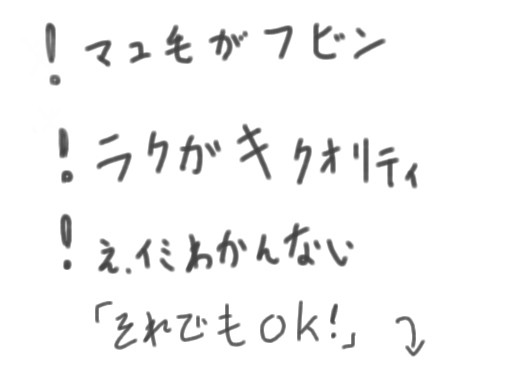 ! マユ毛がフビン
! ラクガキクオリティ
! え.イミわかんない
「それでもOK!」⤵